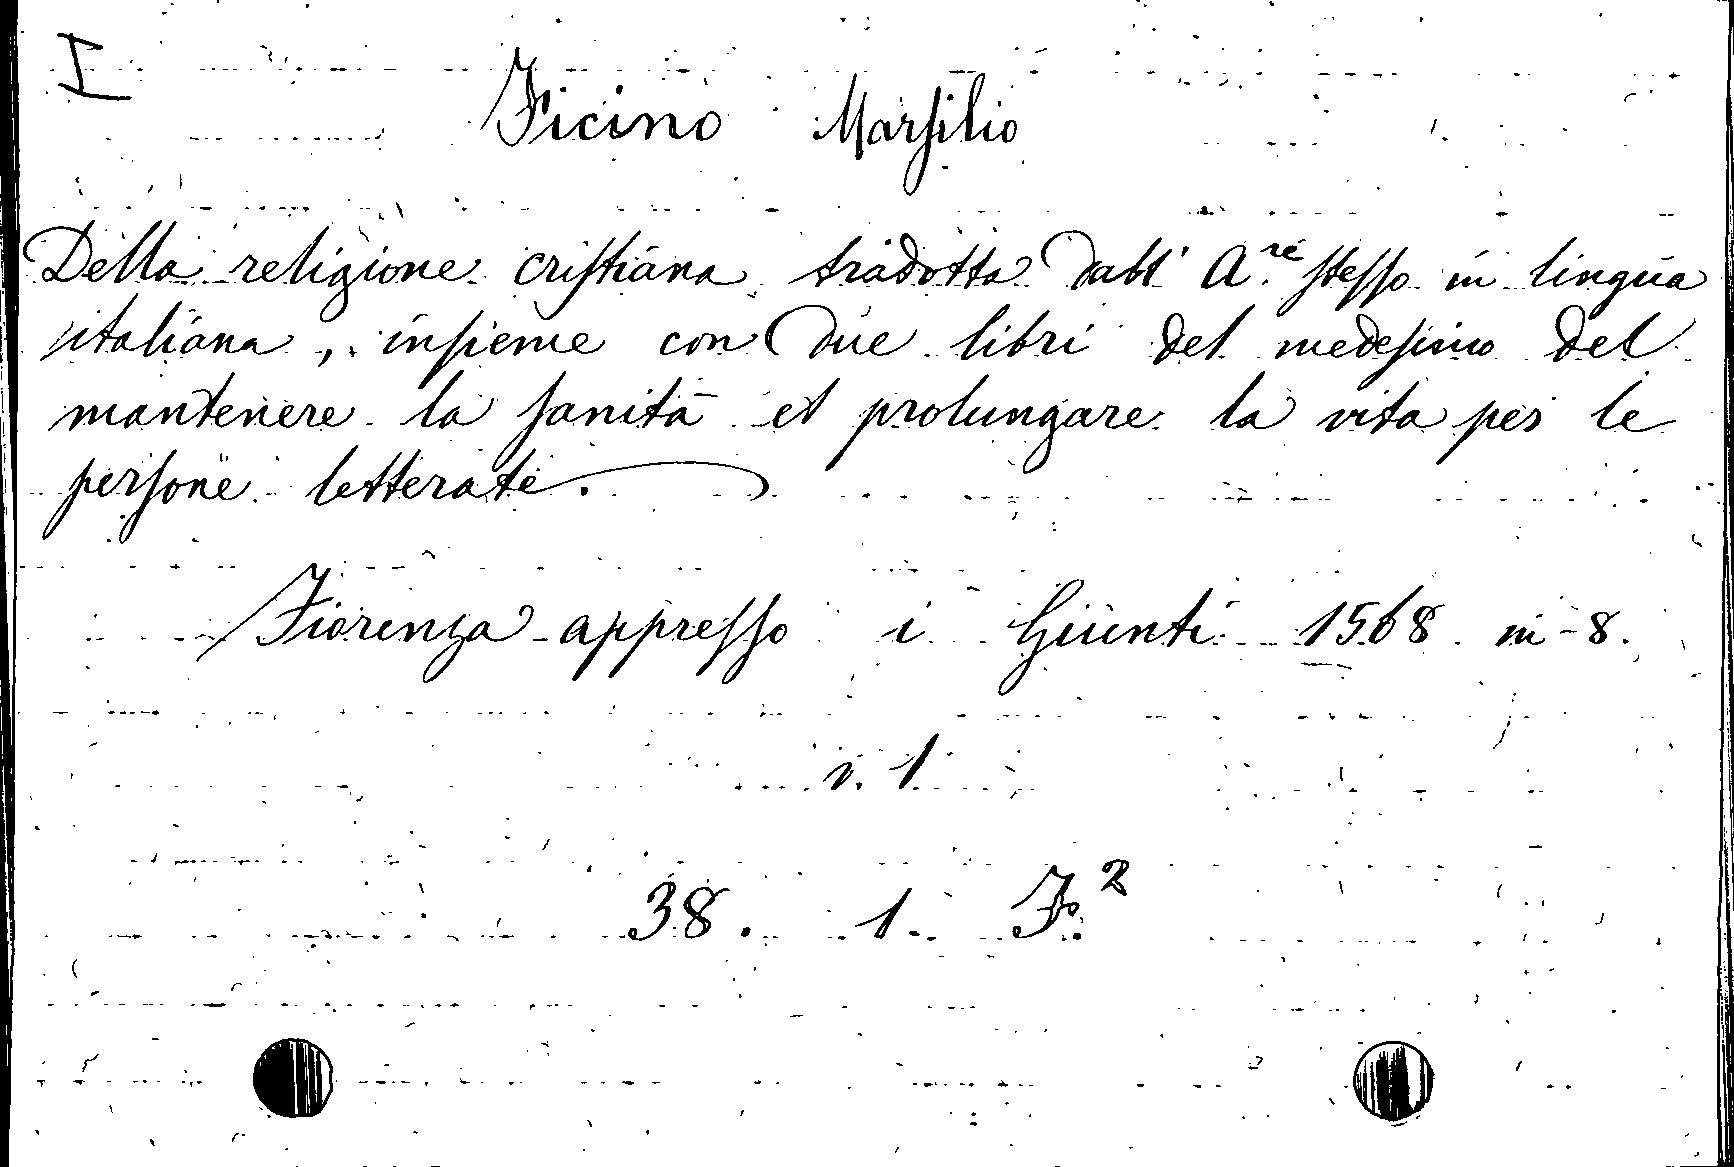 I
Ficino Marsilio
Della religione cristiana tradotta dall' A.re stesso in lingua
italiana, insieme con due libri del medesimo del
mantenere la sanità et prolungare la vita per le
persone letterate.
Fiorenza appresso i Giunti 1568 in-8.
v. 1
38. 1. F.2